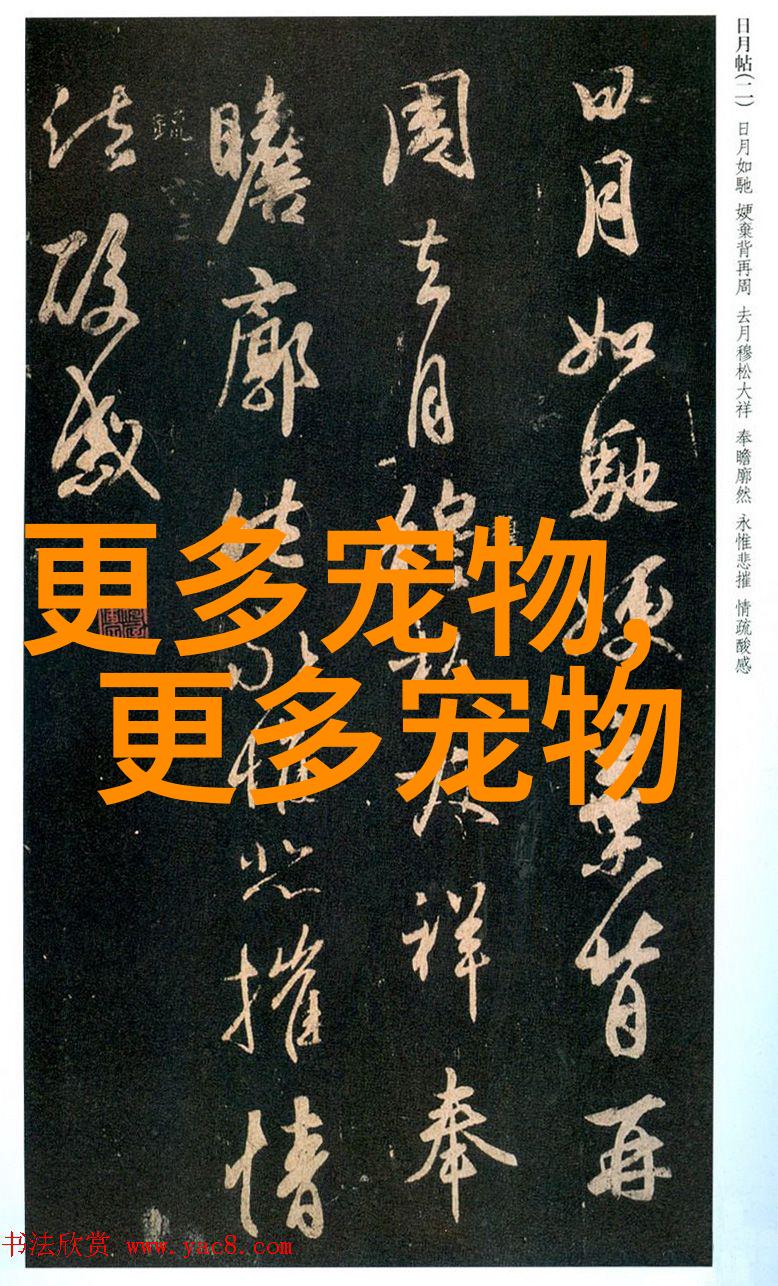 日月帖(二) 日月如馳 㛐棄背再周 去月穆松大祥 奉瞻廓然 永惟悲摧 情疏酸感
日月如馳㛐棄背再
周去月穆松大祥奉
瞻廓然永惟悲摧情
酸感
更多宠物,
更多宠物
书法欣赏 www.yac8.com